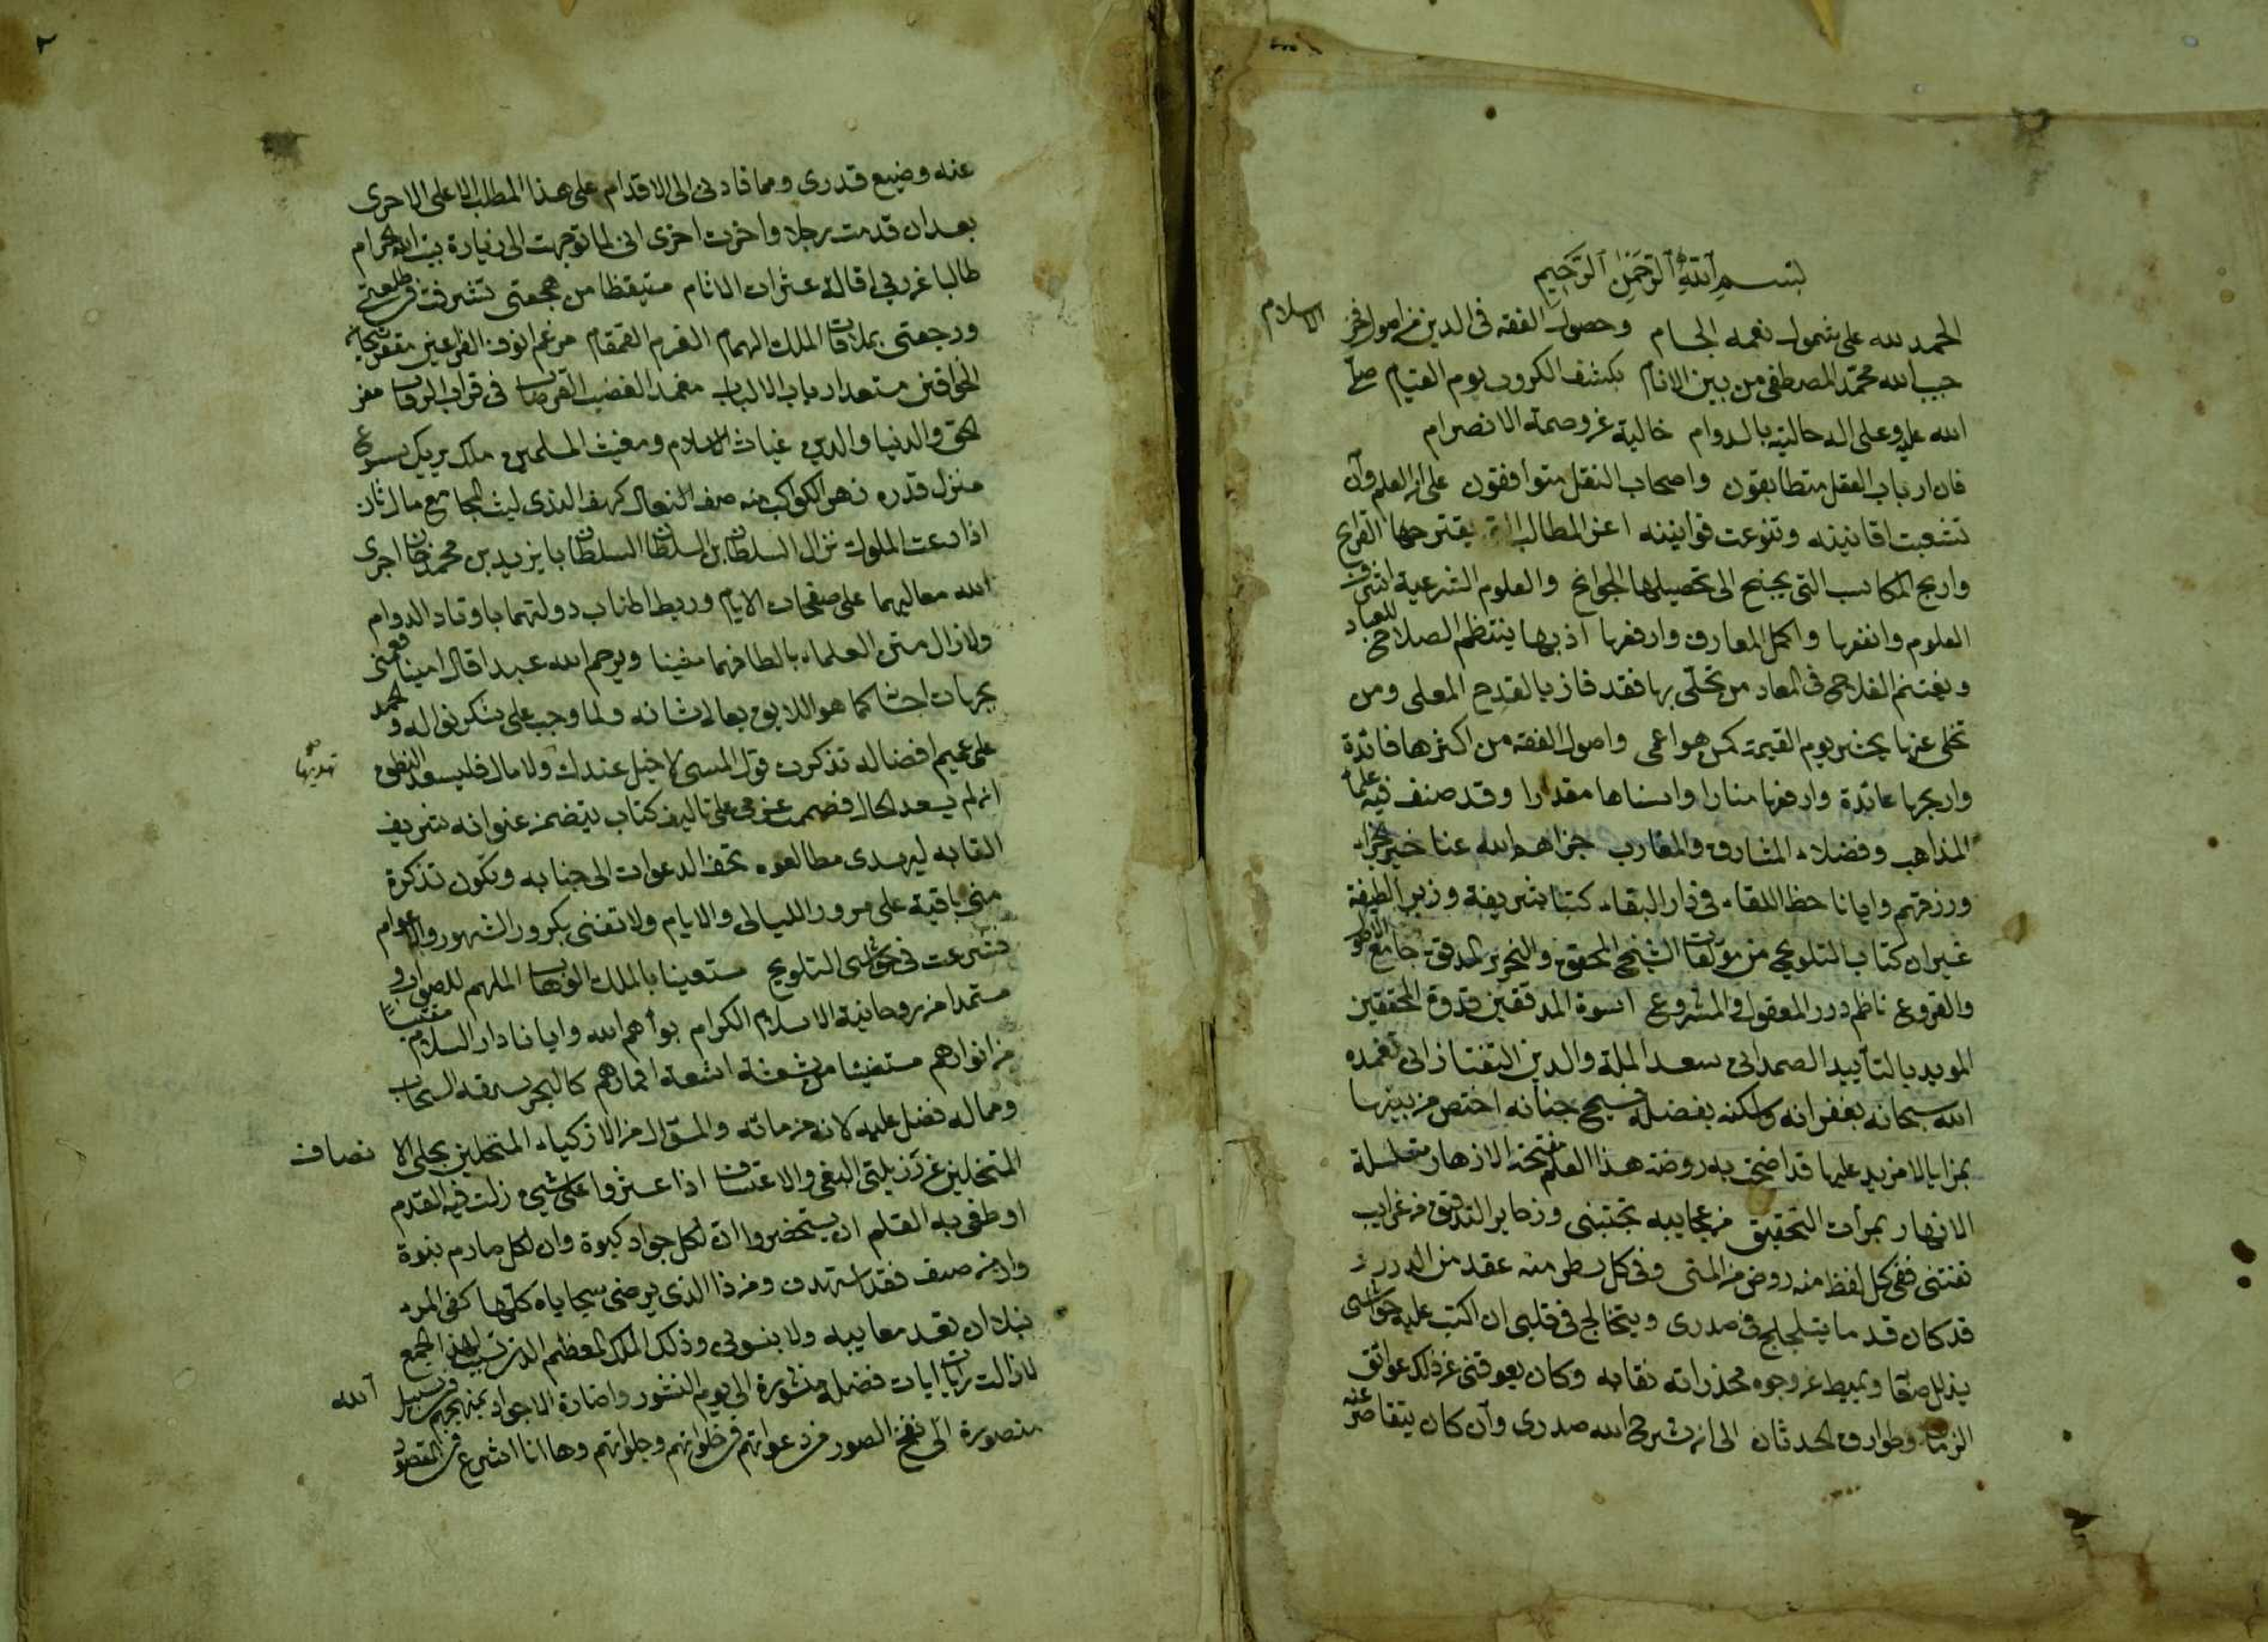 بسم الله الرحمن الرحيم
الحمد لله على شمول نعمه الجسام وحصول الفقه فى الدين من اصول فخر الاسلام
حبيب الله محمد المصطفى من بين الانام بكشف الكروب يوم القيام صلى
الله عليه وعلى اله حالية بالدوام خالية عن وصمة الانصرام
فان ارباب العقل متطابقون واصحاب النقل متوافقون على ان العلم وان
تشعبت افانينه وتنوعت قوانينه اعز المطالب التى يقترحها القرايح
واربح المكاسب التى يجنح الى تحصيلها الجوانح والعلوم الشرعية اشرف
العلوم وانفعها واكمل المعارف وارفعها اذ بها ينتظم الصلاح للعباد
ويغتنم الفلاح فى المعاد من تحلى بها فقد فاز بالقدح المعلى ومن
تخلى عنها يحشر يوم القيمة كمن هو اعمى واصول الفقه من اكثرها فائدة
واربحها عائدة وارفعها منارا واسناها مقدارا وقد صنف فيه علماء
المذاهب وفضلاء المشارق والمغارب جزاهم الله عنا خير الجزاء
ورزقهم وايانا حظ اللقاء فى دار البقاء كتبا شريفة وزبرا لطيفة
غير ان كتاب التلويح من مؤلفات الشيخ المحقق والنحرير المدقق جامع الاصول
والفروع ناظم درر المعقول والمشروع اسوة المدققين قدوة المحققين
المويد بالتأييد الصمدانى سعد الملة والدين التفتازانى تغمده
الله سبحانه بغفرانه واسكنه بفضله فسيح جنانه اختص من بينها
بمزايا لا مزيد عليها قد اضحت به روضة هذا العلم مفتحة الازهار متسلسلة
الانهار ثمرات التحقيق من عجايبه تجتنى وذخاير التدقيق من غرايبه
تقتنى ففى كل لفظ منه روض من المنى وفى كل سطر منه عقد من الدرر
قد كان قدما يتلجلج فى صدرى ويتخالج فى قلبى ان اكتب عليه حواشى
يذلل صعابه ويميط عن وجوه مخدراته نقابه وكان يعوقنى عن ذلك عوائق
الزمان وطوارق الحدثان الى ان شرح الله صدرى وان كان يتقاصر عنه
عنه وضيع قدرى ومما قادنى الى الاقدام على هذا المطلب الاعلى الاحرى
بعد ان قدمت رجلا واخرت اخرى انى لما توجهت الى زيارة بيت الله الحرام
طالبا من ربى اقالة عثرات الاثام متيقظا من هجعتى تشرفت فى طلعتى
ورجعتى بملاقات الملك الهمام القرم القمقام مرغم انوف الفراعين مقعر تيجان
الخواقين مستعد ارباب الالباب مغمد الغضب القرضاب فى قراب الرقاب معز
الحق والدنيا والدين غياث الاسلام ومغيث المسلمين ملك يريك
منزل قدره زهر الكواكب منه صف النعال كهف الندى ليث المجامع ما له ثان
اذا دعت الملوك نزال السلطان بن السلطان السلطان بايزيد بن محمد خان اجرى
الله معاليهما على صفحات الايام وربط اطناب دولتهما باوتاد الدوام
ولا زال متن العلماء بالطافهما متينا ويرحم الله عبدا قال امينا فعمنى
بجهات احسانه كما هو اللايق بعالى شانه ولما وجب على شكر نواله والحمد
على عميم افضاله تذكرت قول المسى لا خيل عندك تهديها ولا مال فليسعد النطق
ان لم يسعد الحال فصمم عزمى على تاليف كتاب يتضمن عنوانه شريف
القابه ليهدى مطالعوه تحف الدعوات الى جنابه ويكون تذكرة
منى باقية على مرور الليالى والايام ولا تفنى بكرور الشهور والاعوام
فشرعت فى حواشى التلويح مستعينا بالملك الوهاب الملهم للصواب
مستمدا من روحانية الاسلام الكرام بوأهم الله وايانا دار السلام مقتبسا
من انوارهم مستفيضا من اشعة اقمارهم كالبحر يسرقه السحاب
وما له فضل عليه لانه من مائه والمسؤل من الاذكياء المتحلين بحلى الانصاف
المتخلين عن رذيلتى البغى والاعتساف اذا عثروا على شيئ زلت فيه القدم
او طغى به القلم ان يستحضروا ان لكل جواد كبوة وان لكل صارم نبوة
وان من صنف فقد استهدف ومن ذا الذى يرضى سجاياه كلها كفى المرء
نبلا ان تعد معايبه ولا ينسونى وذلك الملك المعظم الذى تسبب لهذا الجمع
لا زالت رايات ايات فضله منشورة الى يوم النشور واضارة الاجواد بمنهجهم فى سبيل الله
منصورة الى نفخ الصور من دعواتهم فى خلواتهم وجلواتهم وها انا اشرع فى المقصود